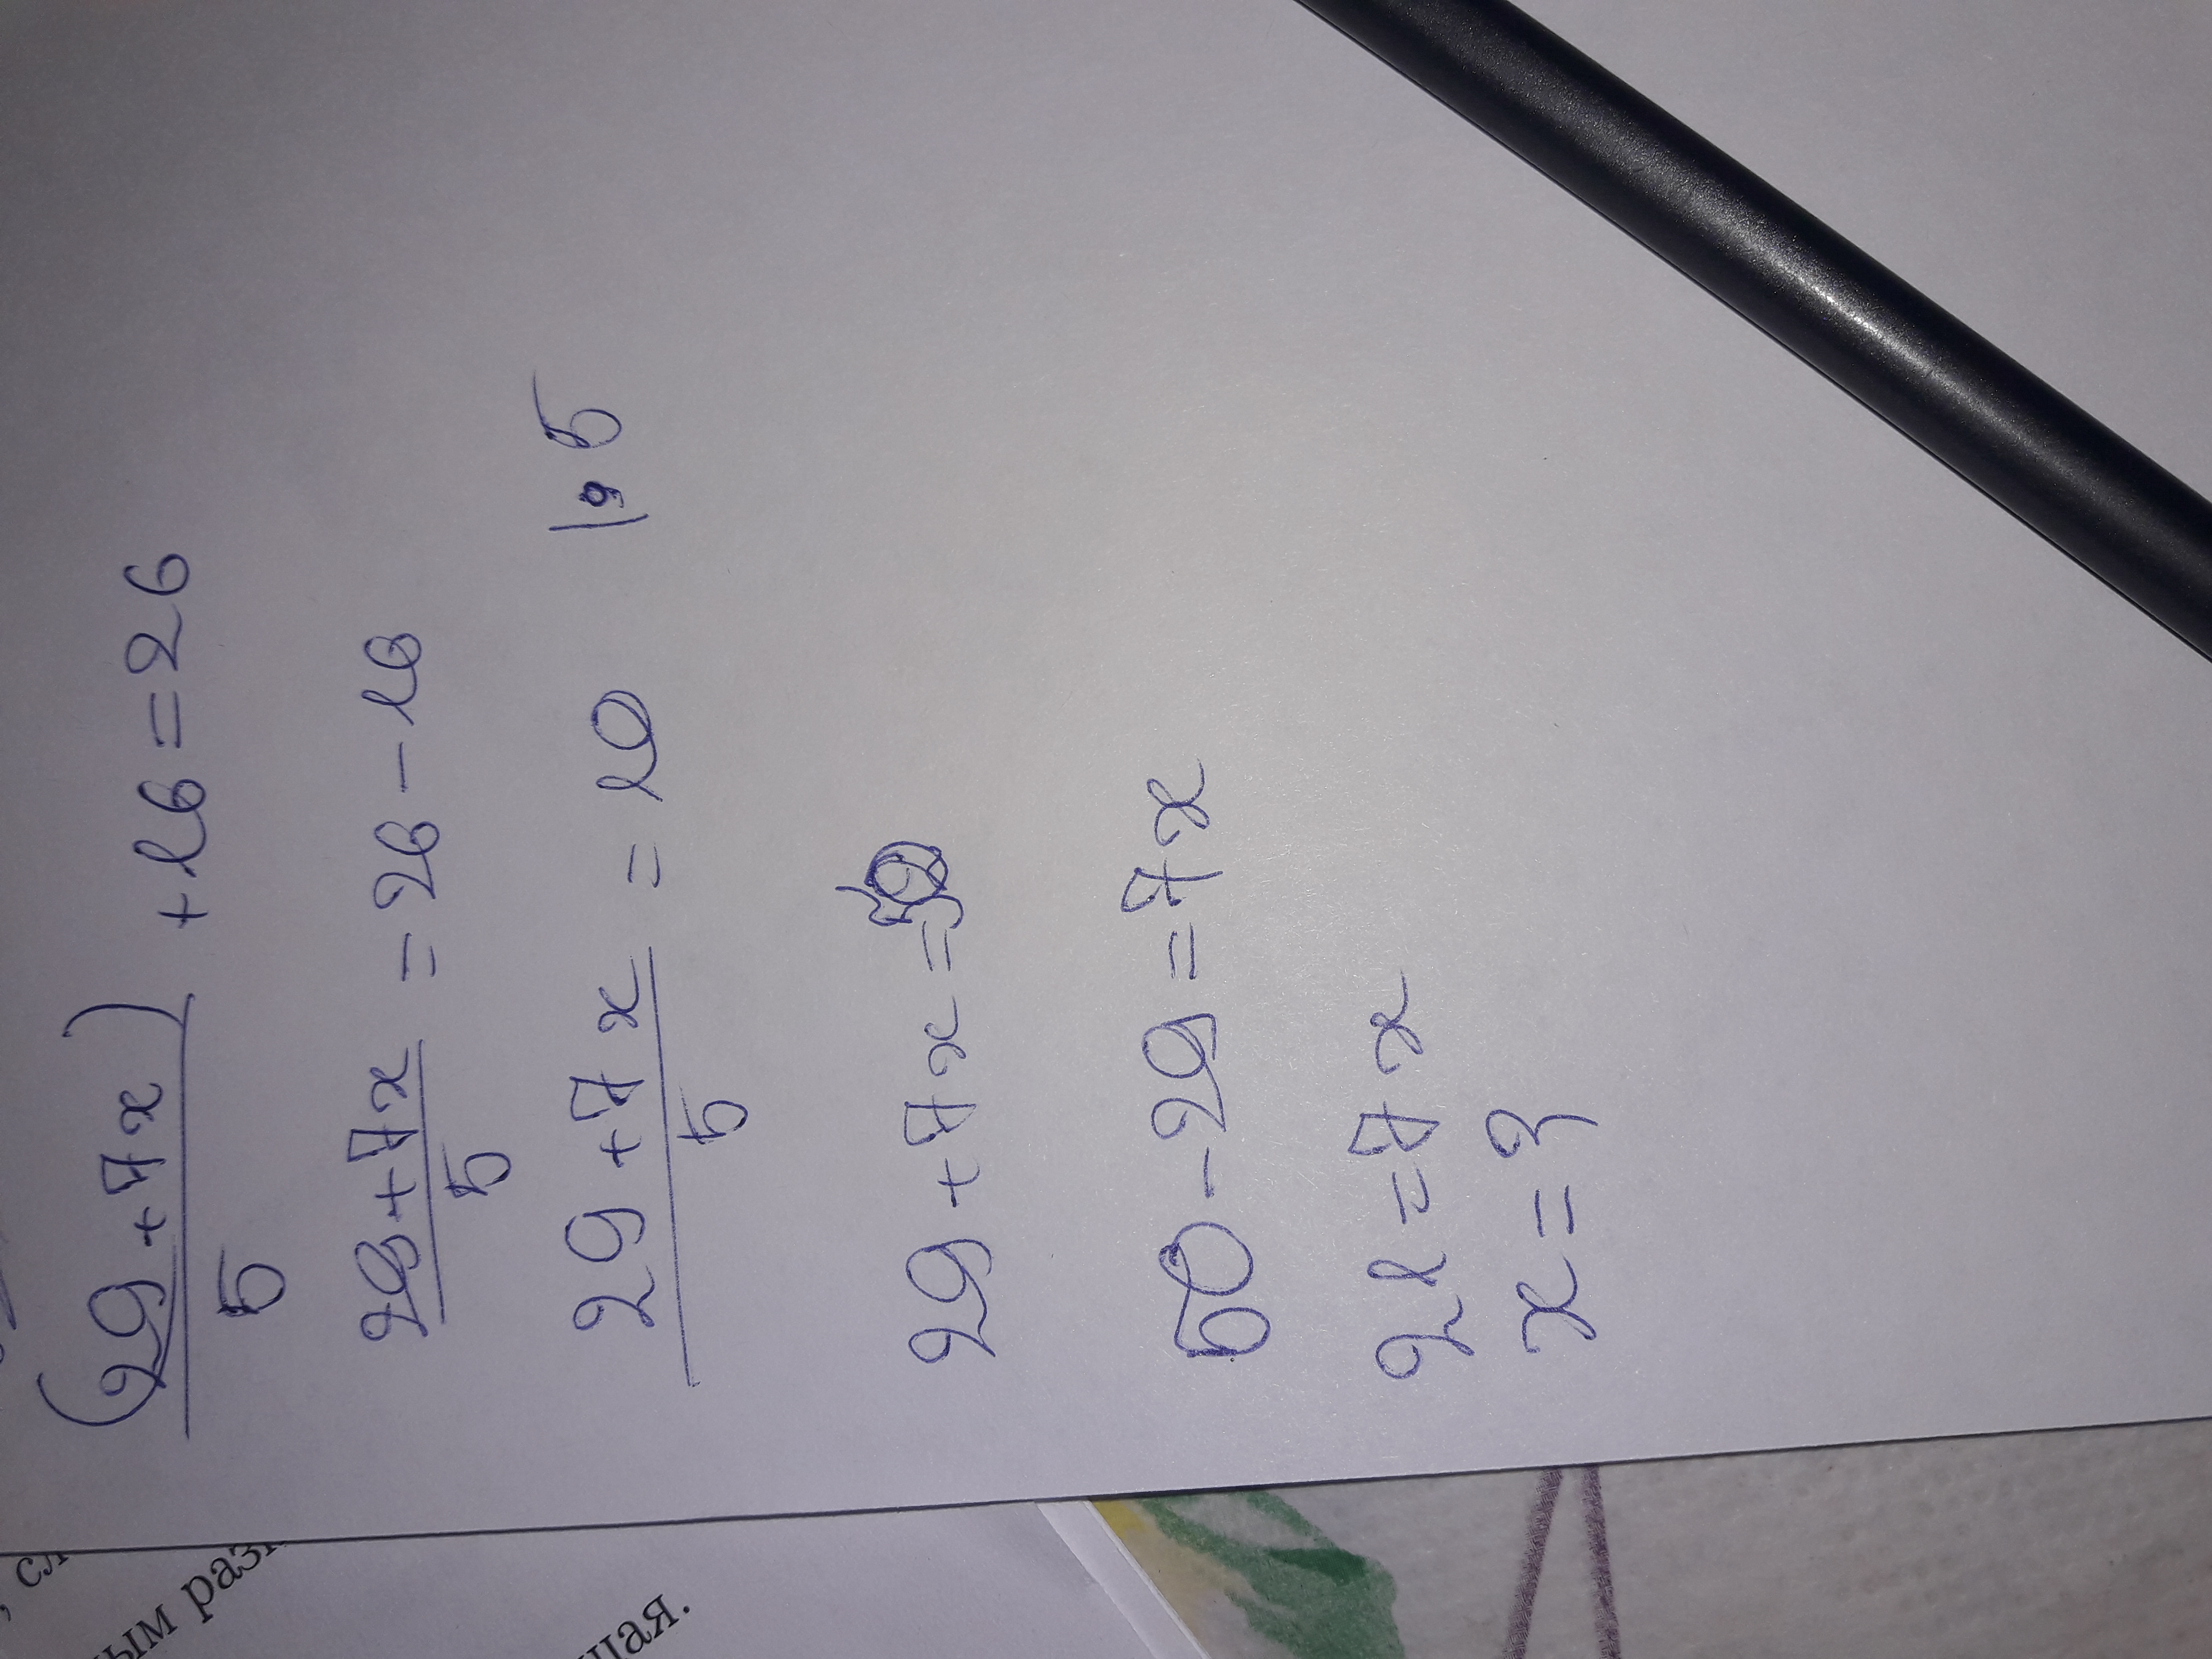 (29+7x)/5 + 16 = 26
29+7x/5 = 26 - 16
29+7x/5 = 10 |·5
29+7x=50
50-29=7x
21=7x
x=3
ная.